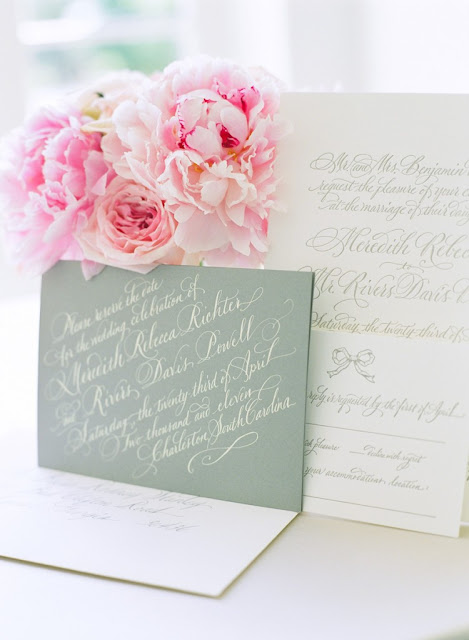 Please reserve the date
for the wedding celebration of
Meredith Rebecca Richter
and Rivers Davis Powell
Saturday, the twenty third of April
Two thousand and eleven
Charleston, South Carolina
Mr. and Mrs. Benjamin
request the pleasure of your
at the marriage of their
Meredith
to
Mr. Rivers Davis
Saturday, the twenty third of
reply is requested by the first of April
pleasure
regret
your accommodations location